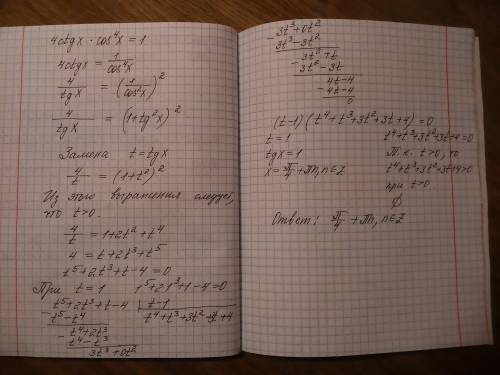 4ctgx · cos⁴x = 1
4ctgx = 1/cos⁴x
4/tgx = (1/cos²x)²
4/tgx = (1+tg²x)²
Замена t = tgx
4/t = (1+t²)²
Из этого выражения следует,
что t>0.
4/t = 1+2t²+t⁴
4 = t+2t³+t⁵
t⁵+2t³+t-4=0
При t=1 1⁵+2·1³+1-4=0
t⁵+2t³+t-4 | t-1
- t⁵-t⁴ t⁴+t³+3t²+3t+4
- t⁴+2t³
t⁴-t³
3t³+0t²
- 3t³+0t²
3t³-3t²
- 3t²+t
3t²-3t
- 4t-4
4t-4
0
(t-1)(t⁴+t³+3t²+3t+4)=0
t=1 t⁴+t³+3t²+3t+4=0
tgx=1 т.к. t>0, то
x=π/4+πn, n∈Z t⁴+t³+3t²+3t+4>0
при t>0
∅
Ответ: π/4+πn, n∈Z